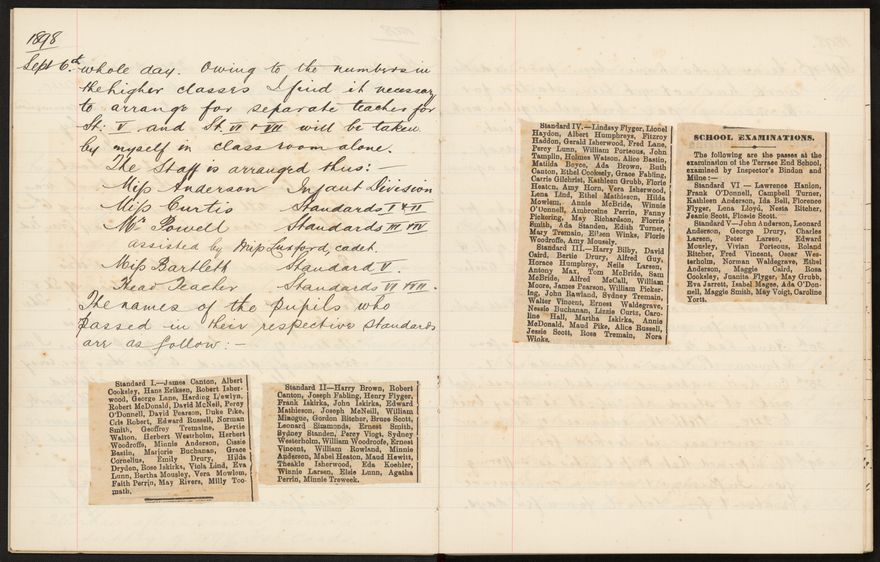 1898
Sept 6th whole day. Owing to the numbers in
the higher classes I find it necessary
to arrange for separate teacher for
St: V and St VI & VII will be taken
by myself in class room alone.
The Staff is arranged thus:
Miss Anderson Infant Division
Miss Curtis Standards I & II
Mr Powell Standards III & IV
assisted by Miss Luxford, cadet.
Miss Bartlett Standard V.
Head Teacher Standards VI & VII.
The names of the Pupils who
passed in their respective standards
are as follow: —
Standard I.—James Canton, Albert
Cooksley, Hans Eriksen, Robert Isher-
wood, George Lane, Harding Llewlyn,
Robert McDonald, David McNeil, Percy
O'Donnell, David Pearson, Duke Pike,
Cris Robert, Edward Russell, Norman
Smith, Geoffrey Tremaine, Bertie
Walton, Herbert Westrholm, Herbert
Woodroffe, Minnie Anderson, Cissie
Bastin, Marjorie Buchanan, Grace
Cornelius, Emily Drury, Hilda
Dryden, Rose Iskirks, Viola Lind, Eva
Lunn, Bertha Mousley, Vera Mowlom,
Faith Perrin, May Rivers, Milly Too-
math.
Standard II—Harry Brown, Robert
Canton, Joseph Fabling, Henry Flyger,
Frank Iskirka, John Iskirks, Edward
Mathieson, Joseph McNeill, William
Minogue, Gordon Ritcher, Bruce Scott,
Leonard Simmonds, Ernest Smith,
Sydney Standen, Percy Viogt, Sydney
Westerholm, William Woodroofe, Ernest
Vincent, William Rowland, Minnie
Anderson, Mabel Heaton, Maud Hewitt,
Theakle Isherwood, Eda Koehler,
Winnie Larsen, Elsie Lunn, Agatha
Perrin, Minnie Treweek.
Standard IV.—Lindsay Flyger, Lionel
Haydon, Albert Humphreys, Fitzroy
Haddon, Gerald Isherwood, Fred Lane,
Percy Lunn, William Porteous, John
Tamplin, Holmes Watson, Alice Bastin,
Matilda Boyce, Ada Brown, Ruth
Canton, Ethel Cooksley, Grace Fabling,
Carrie Gilchrist, Kathleen Grubb, Florie
Heaton, Amy Horn, Vera Isherwood,
Lena Lind, Ethel Mathieson, Hilda
Mowlem, Annie McBride, Winnie
O'Donnell, Ambrozine Perrin, Fanny
Pickering, May Richardson, Florrie
Smith, Ada Standen, Edith Turner,
Mary Tremain, Eileen Winks, Florie
Woodroffe, Amy Mousely.
Standard III.—Harry Bilby, David
Caird, Bertie Drury, Alfred Guy,
Horace Humphrey, Neils Larsen,
Antony Max, Tom McBride, Sam
McBride, Alfred McCall, William
Moore, James Pearson, William Picker-
ing, John Rawland, Sydney Tremain,
Walter Vincent, Ernest Waldegrave,
Nessie Buchanan, Lizzie Curts, Caro-
line Hall, Martha Iskirka, Annie
McDonald, Maud Pike, Alice Russell,
Jessie Scott, Rosa Tremain, Nora
Winks.
SCHOOL EXAMINATIONS.
The following are the passes at the
examination of the Terrace End School,
examined by Inspector's Bindon and
Milne:—
Standard VI — Lawrence Hanlon,
Frank O'Donnell, Campbell Turner,
Kathleen Anderson, Ida Bell, Florence
Flyger, Lena Lloyd, Nesta Ritcher,
Jeanie Scott, Flossie Scott.
Standard V—John Anderson, Leonard
Anderson, George Drury, Charles
Larsen, Peter Larsen, Edward
Mousley, Vivian Porteous, Roland
Ritcher, Fred Vincent, Oscar Wes-
terholm, Norman Waldegrave, Ethel
Anderson, Maggie Caird, Rosa
Cooksley, Juanita Flyger, May Grubb,
Eva Jarrett, Isabel Magee, Ada O'Don-
nell, Maggie Smith, May Voigt, Caroline
Yortt.